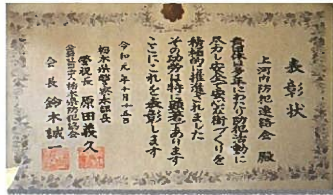 表彰状
上河内防犯連絡会 殿
貴団体は多年にわたり防犯活動に
尽力し安全で安心な街づくりを
積極的に推進されました
その功労は特に顕著であります
ここにこれを表彰します
令和元年十月十五日
栃木県警察本部長
警視長 原田義久
公益社団法人栃木県防犯協会
会長 鈴木誠一